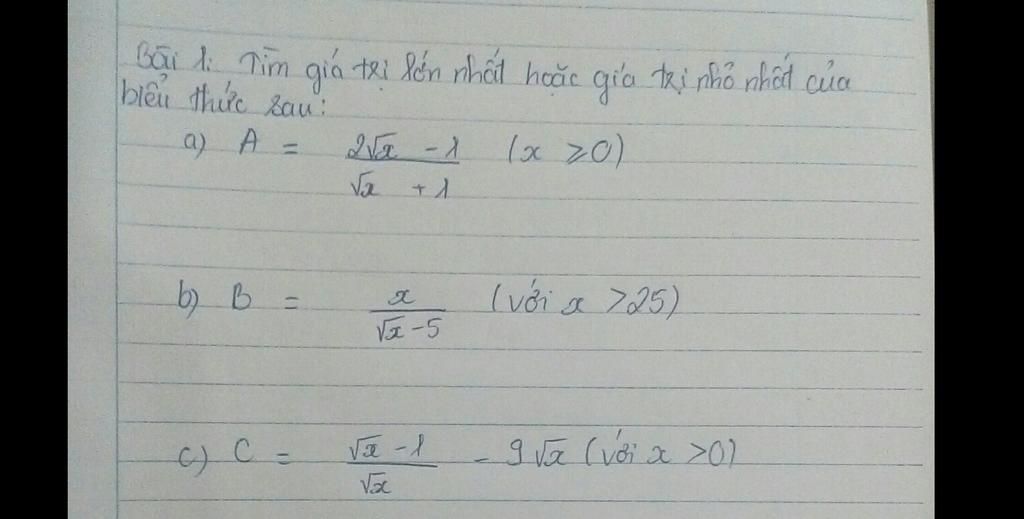 Bài 1: Tìm giá trị lớn nhất hoặc giá trị nhỏ nhất của
biểu thức sau:
a) A = 2√x - 1 / √x + 1 (x ≥ 0)
b) B = x / √x - 5 (với x > 25)
c) C = √x - 1 / √x - 9√x (với x > 0)